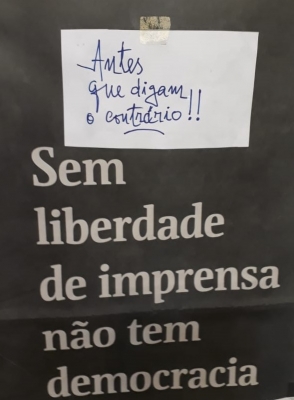 Antes
que digam
o contrário!!
Sem
liberdade
de imprensa
não tem
democracia